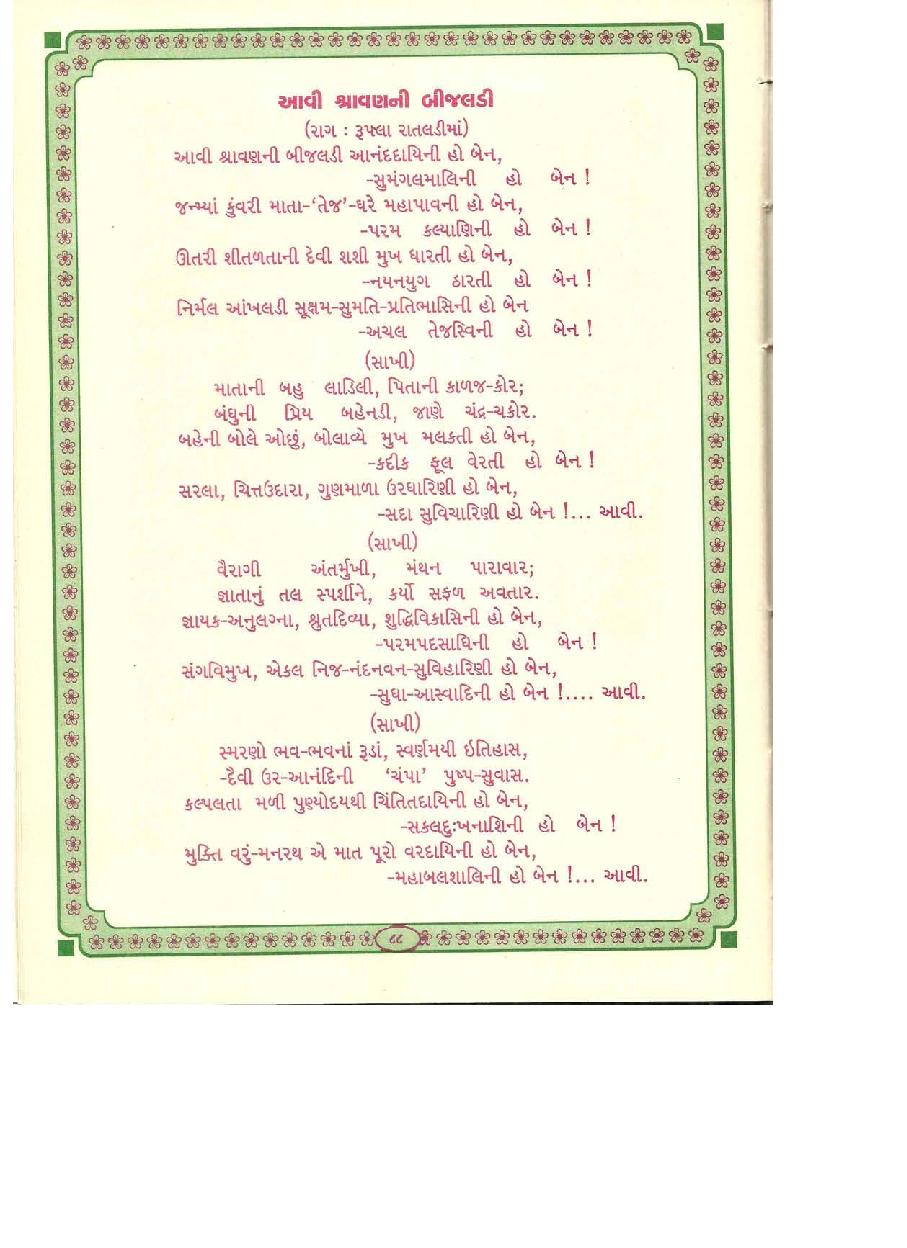 આવી શ્રાવણની બીજલડી
(રાગ : રૂપલા રાતલડીમાં)
આવી શ્રાવણની બીજલડી આનંદદાયિની હો બેન,
-સુમંગલમાલિની હો બેન !
જન્મ્યાં કુંવરી માતા-‘તેજ’-ઘરે મહાપાવની હો બેન,
-પરમ કલ્યાણિની હો બેન !
ઊતરી શીતળતાની દેવી શશી મુખ ધારતી હો બેન,
-નયનયુગ ઠારતી હો બેન !
નિર્મલ આંખલડી સૂક્ષમ-સુમતિ-પ્રતિભાસિની હો બેન
-અચલ તેજસ્વિની હો બેન !
(સાખી)
માતાની બહુ લાડિલી, પિતાની કાળજ-કોર;
બંધુની પ્રિય બહેનડી, જાણે ચંદ્ર-ચકોર.
બહેની બોલે ઓછું, બોલાવ્યે મુખ મલકતી હો બેન,
-કદીક ફૂલ વેરતી હો બેન !
સરલા, ચિત્તઉદારા, ગુણમાળા ઉરધારિણી હો બેન,
-સદા સુવિચારિણી હો બેન !... આવી.
(સાખી)
વૈરાગી અંતર્મુખી, મંથન પારાવાર;
જ્ઞાતાનું તલ સ્પર્શીને, કર્યો સફળ અવતાર.
જ્ઞાયક-અનુલગ્ના, શ્રુતદિવ્યા, શુદ્ધિવિકાસિની હો બેન,
-પરમપદસાધિની હો બેન !
સંગવિમુખ, એકલ નિજ-નંદનવન-સુવિહારિણી હો બેન,
-સુધા-આસ્વાદિની હો બેન !.... આવી.
(સાખી)
સ્મરણો ભવ-ભવનાં રૂડાં, સ્વર્ણમયી ઇતિહાસ,
-દૈવી ઉર-આનંદિની ‘ચંપા’ પુષ્પ-સુવાસ.
કલ્પલતા મળી પુણ્યોદયથી ચિંતિતદાયિની હો બેન,
-સકલદુઃખનાશિની હો બેન !
મુક્તિ વરું-મનરથ એ માત પૂરો વરદાયિની હો બેન,
-મહાબલશાલિની હો બેન !... આવી.